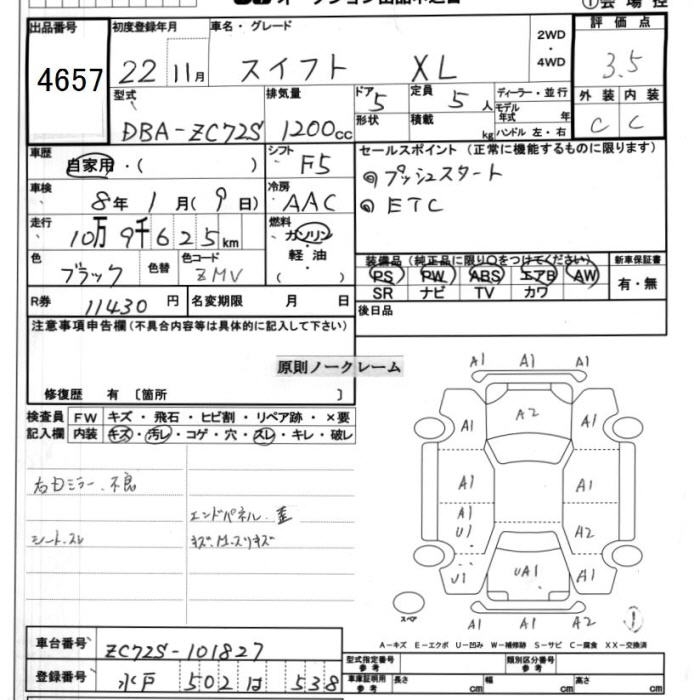 出品番号 初度登録年月 車名・グレード 2WD・4WD 評価点
4657 22 11月 スイフト XL 3.5
型式 排気量 ドア 5 定員 5人 ディーラー・並行 外装 内装
DBA-ZC72S 1200cc 形状 積載 kg モデル年式 年 C C
ハンドル 左・右
車歴 自家用・( ) シフト F5 セールスポイント (正常に機能するものに限ります)
車検 8年 1月(9日) 冷房 AAC ◎プッシュスタート
走行 10万9千625km 燃料 ガソリン ◎ETC
軽・油
( )
色 ブラック 色替 色コード ZMV
装備品(純正品に限り○をつけてください) 新車保証書
PS PW ABS エアB AW 有・無
SR ナビ TV カワ
R券 11430円 名変期限 月 日 後日品
注意事項申告欄(不具合内容等は具体的に記入して下さい)
原則ノークレーム
修復歴 有 〔箇所 〕
検査員 FW キズ・飛石・ヒビ割・リペア跡・×要
記入欄 内装 キズ・汚レ・コゲ・穴・スレ・キレ・破レ
右Dミラー 不良
エンドパネル 歪
シート スレ
A1 A1 A1
A1 A2 A1
A1 A1
A1
U1 A2
U1 UA1 A1
スペア A1 A1 A2
A-キズ E-エクボ U-凹み W-補修跡 S-サビ C-腐食 XX-交換済
車台番号 ZC72S-101827
登録番号 水戸 502 は 538
型式指定番号 参考 類別区分番号 参考
車庫証明用 参考 長さ cm 幅 cm 高さ cm